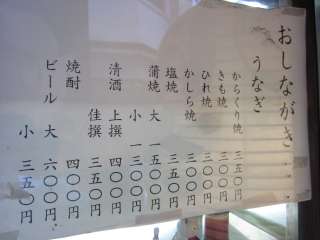 おしながき・・
うなぎ
からくり焼 三五〇円
きも焼 三〇〇円
ひれ焼 三〇〇円
かしら焼 三〇〇円
塩焼 三五〇円
蒲焼 大 一五〇〇円
小 一三〇〇円
清酒 上撰 四〇〇円
佳撰 三五〇円
焼酎 四〇〇円
ビール 大 六〇〇円
小 三五〇円